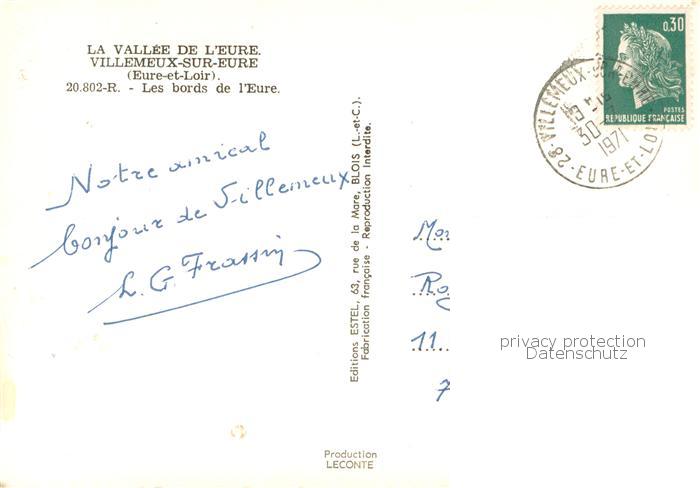 LA VALLÉE DE L'EURE.
VILLEMEUX-SUR-EURE
(Eure-et-Loir).
20.802-R. - Les bords de l'Eure.
0,30
POSTES
REPUBLIQUE FRANÇAISE
28-VILLEMEUX-SUR-EURE
30-
1971
EURE-ET-LOIR
Notre amical
bonjour de Villemeux
L. G. Frassin
Editions ESTEL, 63, rue de la Mare, BLOIS (L.-et-C.).
Fabrication française - Reproduction Interdite.
11
7
privacy protection
Datenschutz
Production
LECONTE